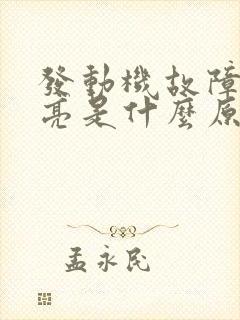 發動機故障
亮是什麼原
孟永民